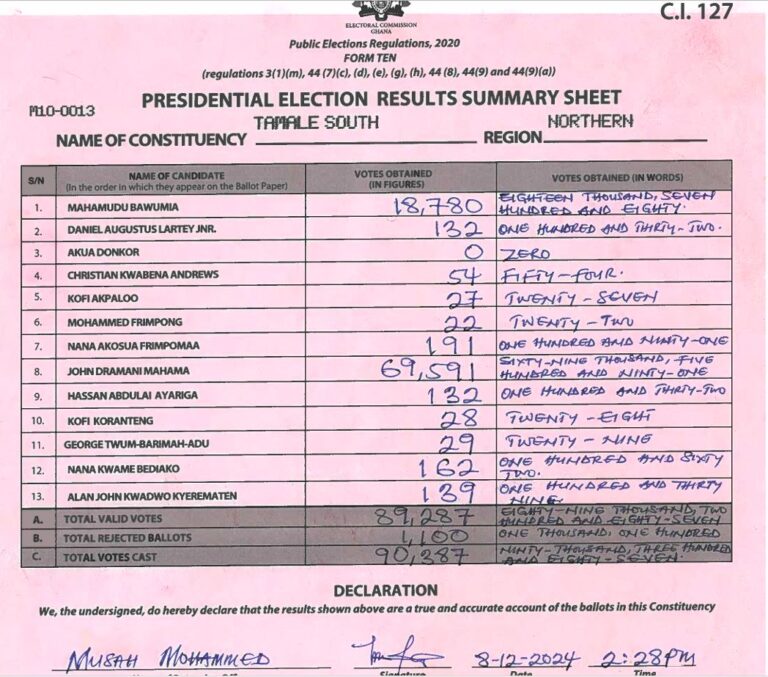 C.I. 127
ELECTORAL COMMISSION
GHANA
Public Elections Regulations, 2020
FORM TEN
(regulations 3(1)(m), 44 (7)(c), (d), (e), (g), (h), 44 (8), 44(9) and 44(9)(a))
M10-0013
PRESIDENTIAL ELECTION RESULTS SUMMARY SHEET
NAME OF CONSTITUENCY TAMALE SOUTH REGION NORTHERN
S/N NAME OF CANDIDATE (In the order in which they appear on the Ballot Paper) VOTES OBTAINED (IN FIGURES) VOTES OBTAINED (IN WORDS)
1. MAHAMUDU BAWUMIA 18,780 EIGHTEEN THOUSAND, SEVEN HUNDRED AND EIGHTY.
2. DANIEL AUGUSTUS LARTEY JNR. 132 ONE HUNDRED AND THIRTY-TWO.
3. AKUA DONKOR 0 ZERO
4. CHRISTIAN KWABENA ANDREWS 54 FIFTY-FOUR.
5. KOFI AKPALOO 27 TWENTY-SEVEN
6. MOHAMMED FRIMPONG 22 TWENTY-TWO
7. NANA AKOSUA FRIMPOMAA 191 ONE HUNDRED AND NINTY-ONE
8. JOHN DRAMANI MAHAMA 69,591 SIXTY-NINE THOUSAND, FIVE HUNDRED AND NINTY-ONE
9. HASSAN ABDULAI AYARIGA 132 ONE HUNDRED AND THIRTY-TWO
10. KOFI KORANTENG 28 TWENTY-EIGHT
11. GEORGE TWUM-BARIMAH-ADU 29 TWENTY-NINE
12. NANA KWAME BEDIAKO 162 ONE HUNDRED AND SIXTY TWO.
13. ALAN JOHN KWADWO KYEREMATEN 139 ONE HUNDRED AND THIRTY NINE
A. TOTAL VALID VOTES 89,287 EIGHTY-NINE THOUSAND, TWO HUNDRED AND EIGHTY-SEVEN
B. TOTAL REJECTED BALLOTS 1,100 ONE THOUSAND, ONE HUNDRED
C. TOTAL VOTES CAST 90,387 NINTY-THOUSAND, THREE HUNDRED AND EIGHTY-SEVEN.
DECLARATION
We, the undersigned, do hereby declare that the results shown above are a true and accurate account of the ballots in this Constituency
MUSAH MOHAMMED 8-12-2024 2:28PM
Signature Date Time